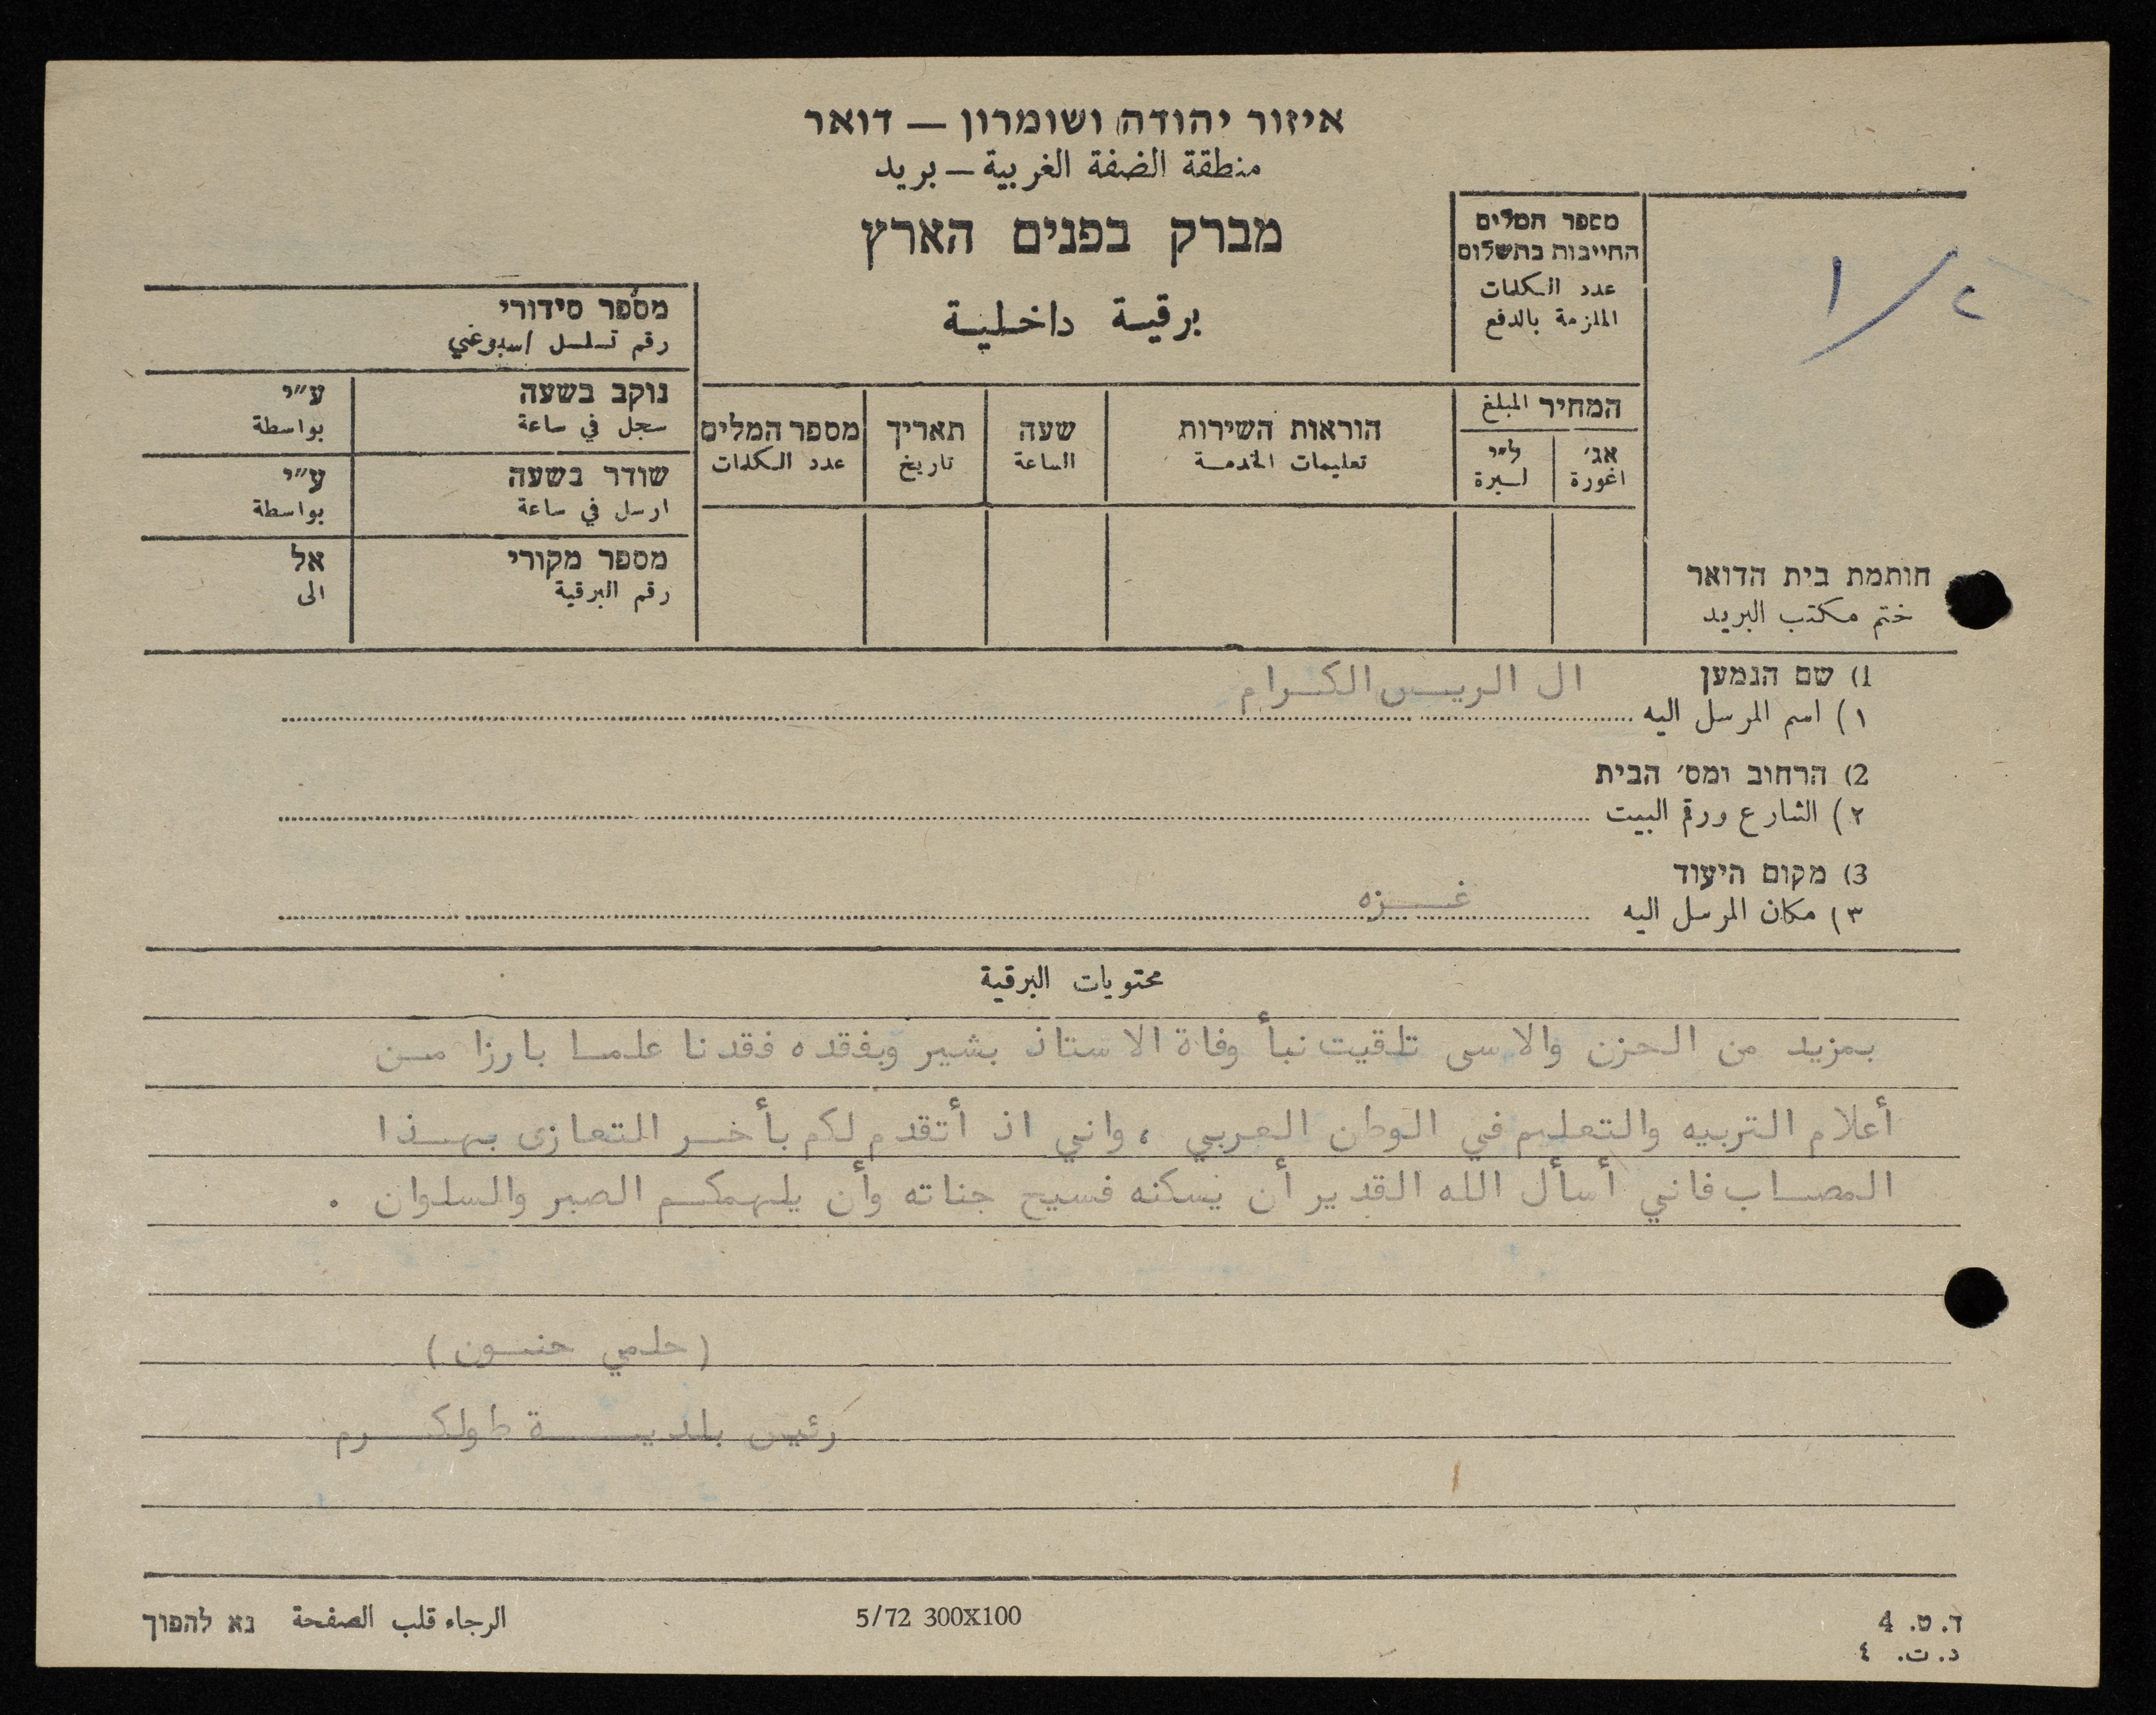 איזור יהודה ושומרון — דואר
منطقة الضفة الغربية — بريد
מברק בפנים הארץ
برقية داخلية
מספר המלים
החייבות בתשלום
عدد الكلمات
الملزمة بالدفع
١/٢
מספר סידורי
رقم تسلسل اسبوعي
נוקב בשעה ע״י
سجل في ساعة بواسطة
שודר בשעה ע״י
ارسل في ساعة بواسطة
מספר מקורי אל
رقم البرقية الى
המחיר المبلغ
אג׳ ל״י הוראות השירות שעה תאריך מספר המלים
اغورة ليرة تعليمات الخدمة الساعة تاريخ عدد الكلمات
חותמת בית הדואר
ختم مكتب البريد
1) שם הנמען
١) اسم المرسل اليه ال الريس الكرام
2) הרחוב ומס׳ הבית
٢) الشارع ورقم البيت
3) מקום היעוד
٣) مكان المرسل اليه غزه
محتويات البرقية
بمزيد من الحزن والاسى تلقيت نبأ وفاة الاستاذ بشير وبفقده فقدنا علما بارزا من
أعلام التربيه والتعليم في الوطن العربي ، واني اذ أتقدم لكم بأحر التعازى بهذا
المصاب فاني أسأل الله القدير أن يسكنه فسيح جناته وأن يلهمكم الصبر والسلوان .
(حلمي حنون)
رئيس بلدية طولكرم
ד. ט. 4
د. ت. ٤
5/72 300X100
الرجاء قلب الصفحة נא להפוך